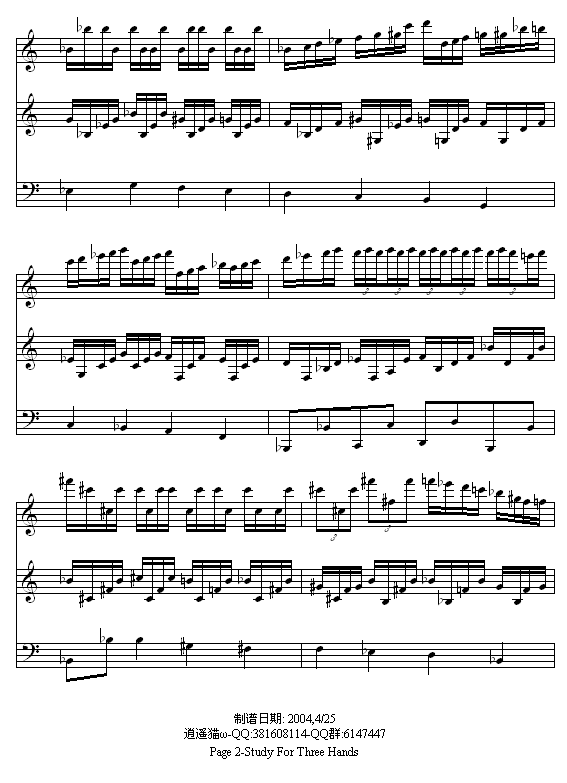 制谱日期: 2004,4/25
逍遥猫ω-QQ:381608114-QQ群:6147447
Page 2-Study For Three Hands